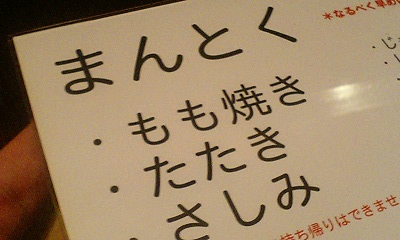 まんとく
*なるべく早め
・もも焼き
・たたき
・さしみ
持ち帰りはできませ